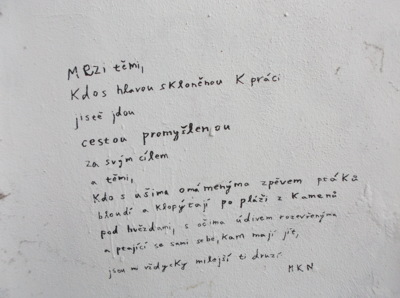 Mezi těmi,
Kdo s hlavou skloněnou K práci
jistě jdou
cestou promyšlenou
za svým cílem
a těmi,
Kdo s ušima omámenýma zpěvem ptáků
bloudí a Klopýtají po pláži z Kamenů
pod hvězdami, s očima údivem rozevřenýma
a ptající se sami sebe, Kam mají jít,
jsou mi vždycky milejší ti druzí.
MKN